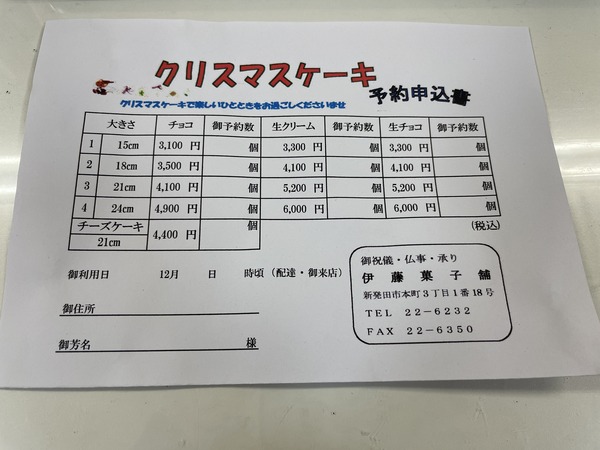 クリスマスケーキ
予約申込書
クリスマスケーキで楽しいひとときをお過ごしくださいませ
大きさ チョコ 御予約数 生クリーム 御予約数 生チョコ 御予約数
1 15cm 3,100 円 個 3,300 円 個 3,300 円 個
2 18cm 3,500 円 個 4,100 円 個 4,100 円 個
3 21cm 4,100 円 個 5,200 円 個 5,200 円 個
4 24cm 4,900 円 個 6,000 円 個 6,000 円 個
チーズケーキ 4,400 円 個
21cm
(税込)
御利用日 12月 日 時頃（配達・御来店）
御住所
御芳名 様
御祝儀・仏事・承り
伊藤菓子舗
新発田市本町3丁目1番18号
TEL 22-6232
FAX 22-6350